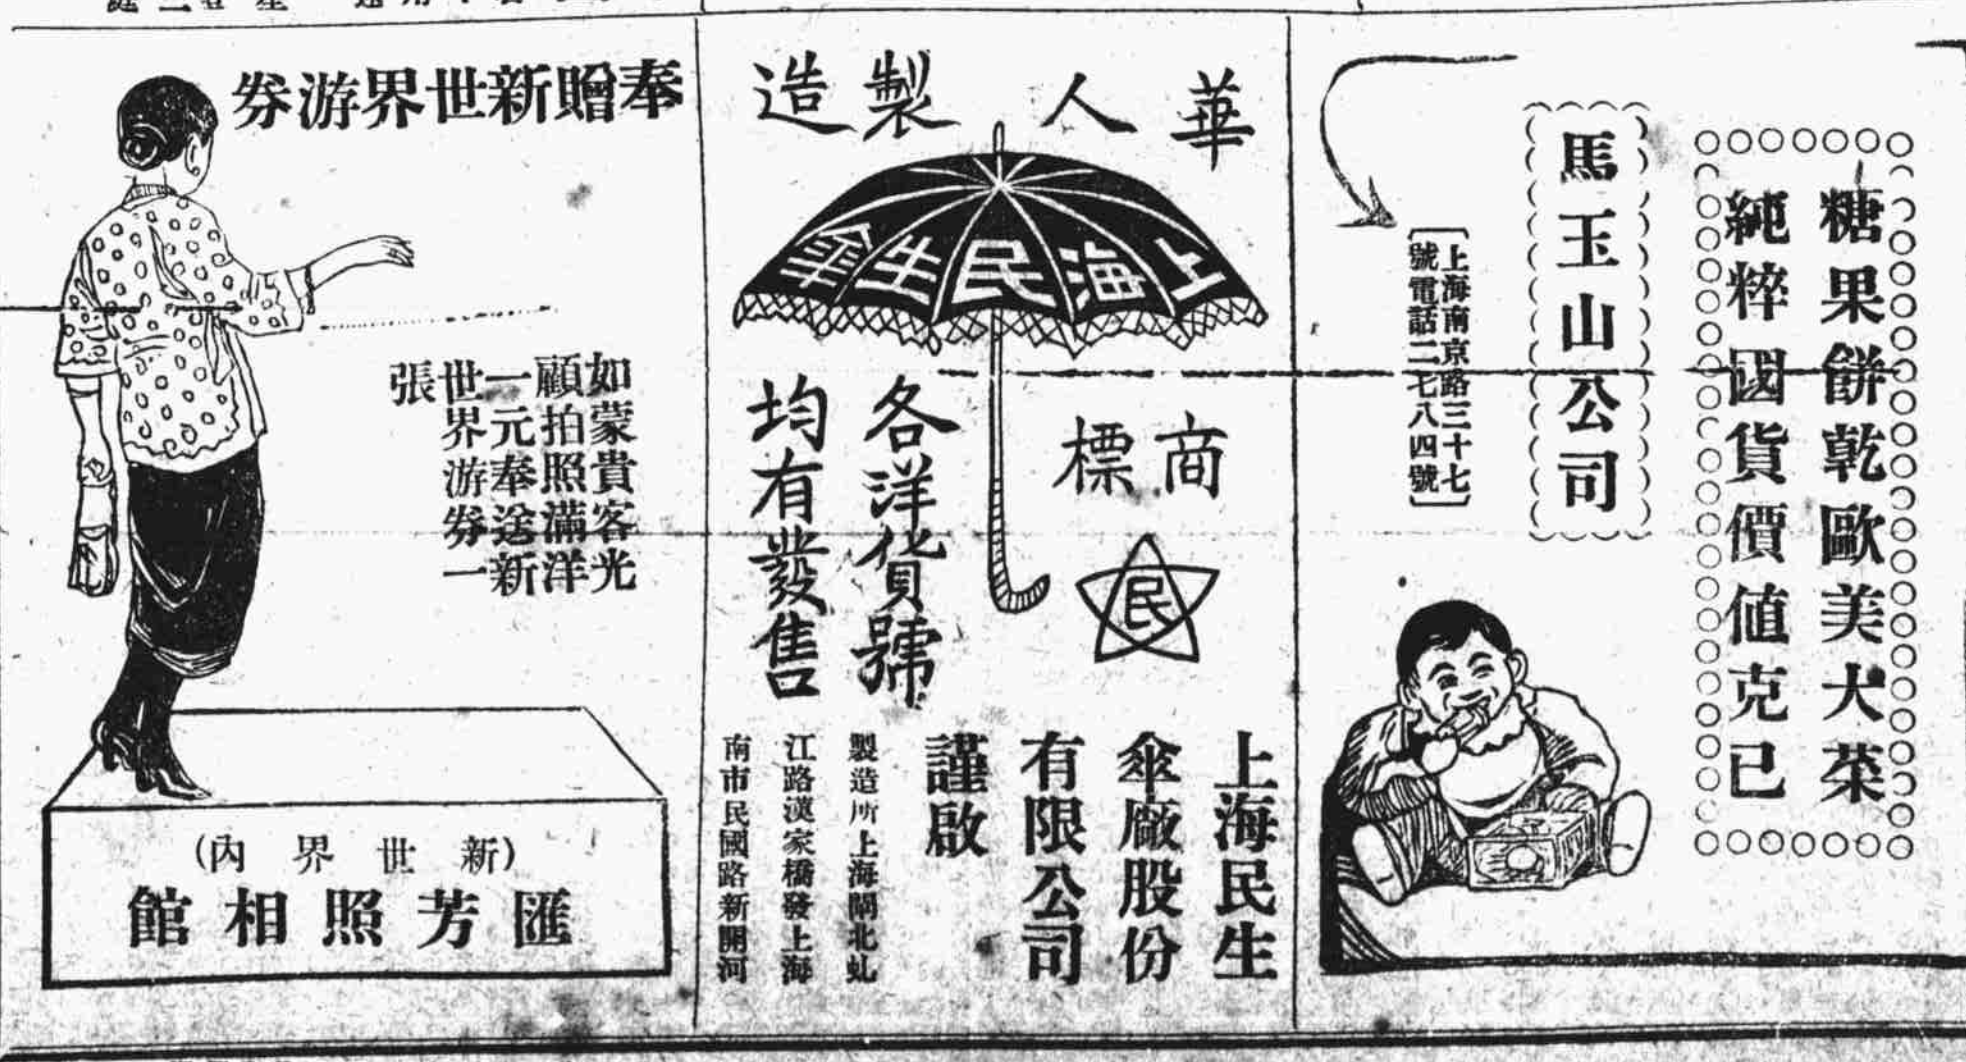 糖果餅乾歐美大菜
純粹國貨價值克已
馬玉山公司
上海南京路三十七
號電話二七八四號
華人製造
上海民生傘
商標
民
各洋貨號
均有發售
上海民生
傘廠股份
有限公司
謹啟
製造所上海閘北虬
江路漢家橋發上海
南市民國路新開河
奉贈新世界游券
如蒙貴客光
顧拍照滿洋
一元奉送新
世界游券一
張
(新世界內)
匯芳照相館